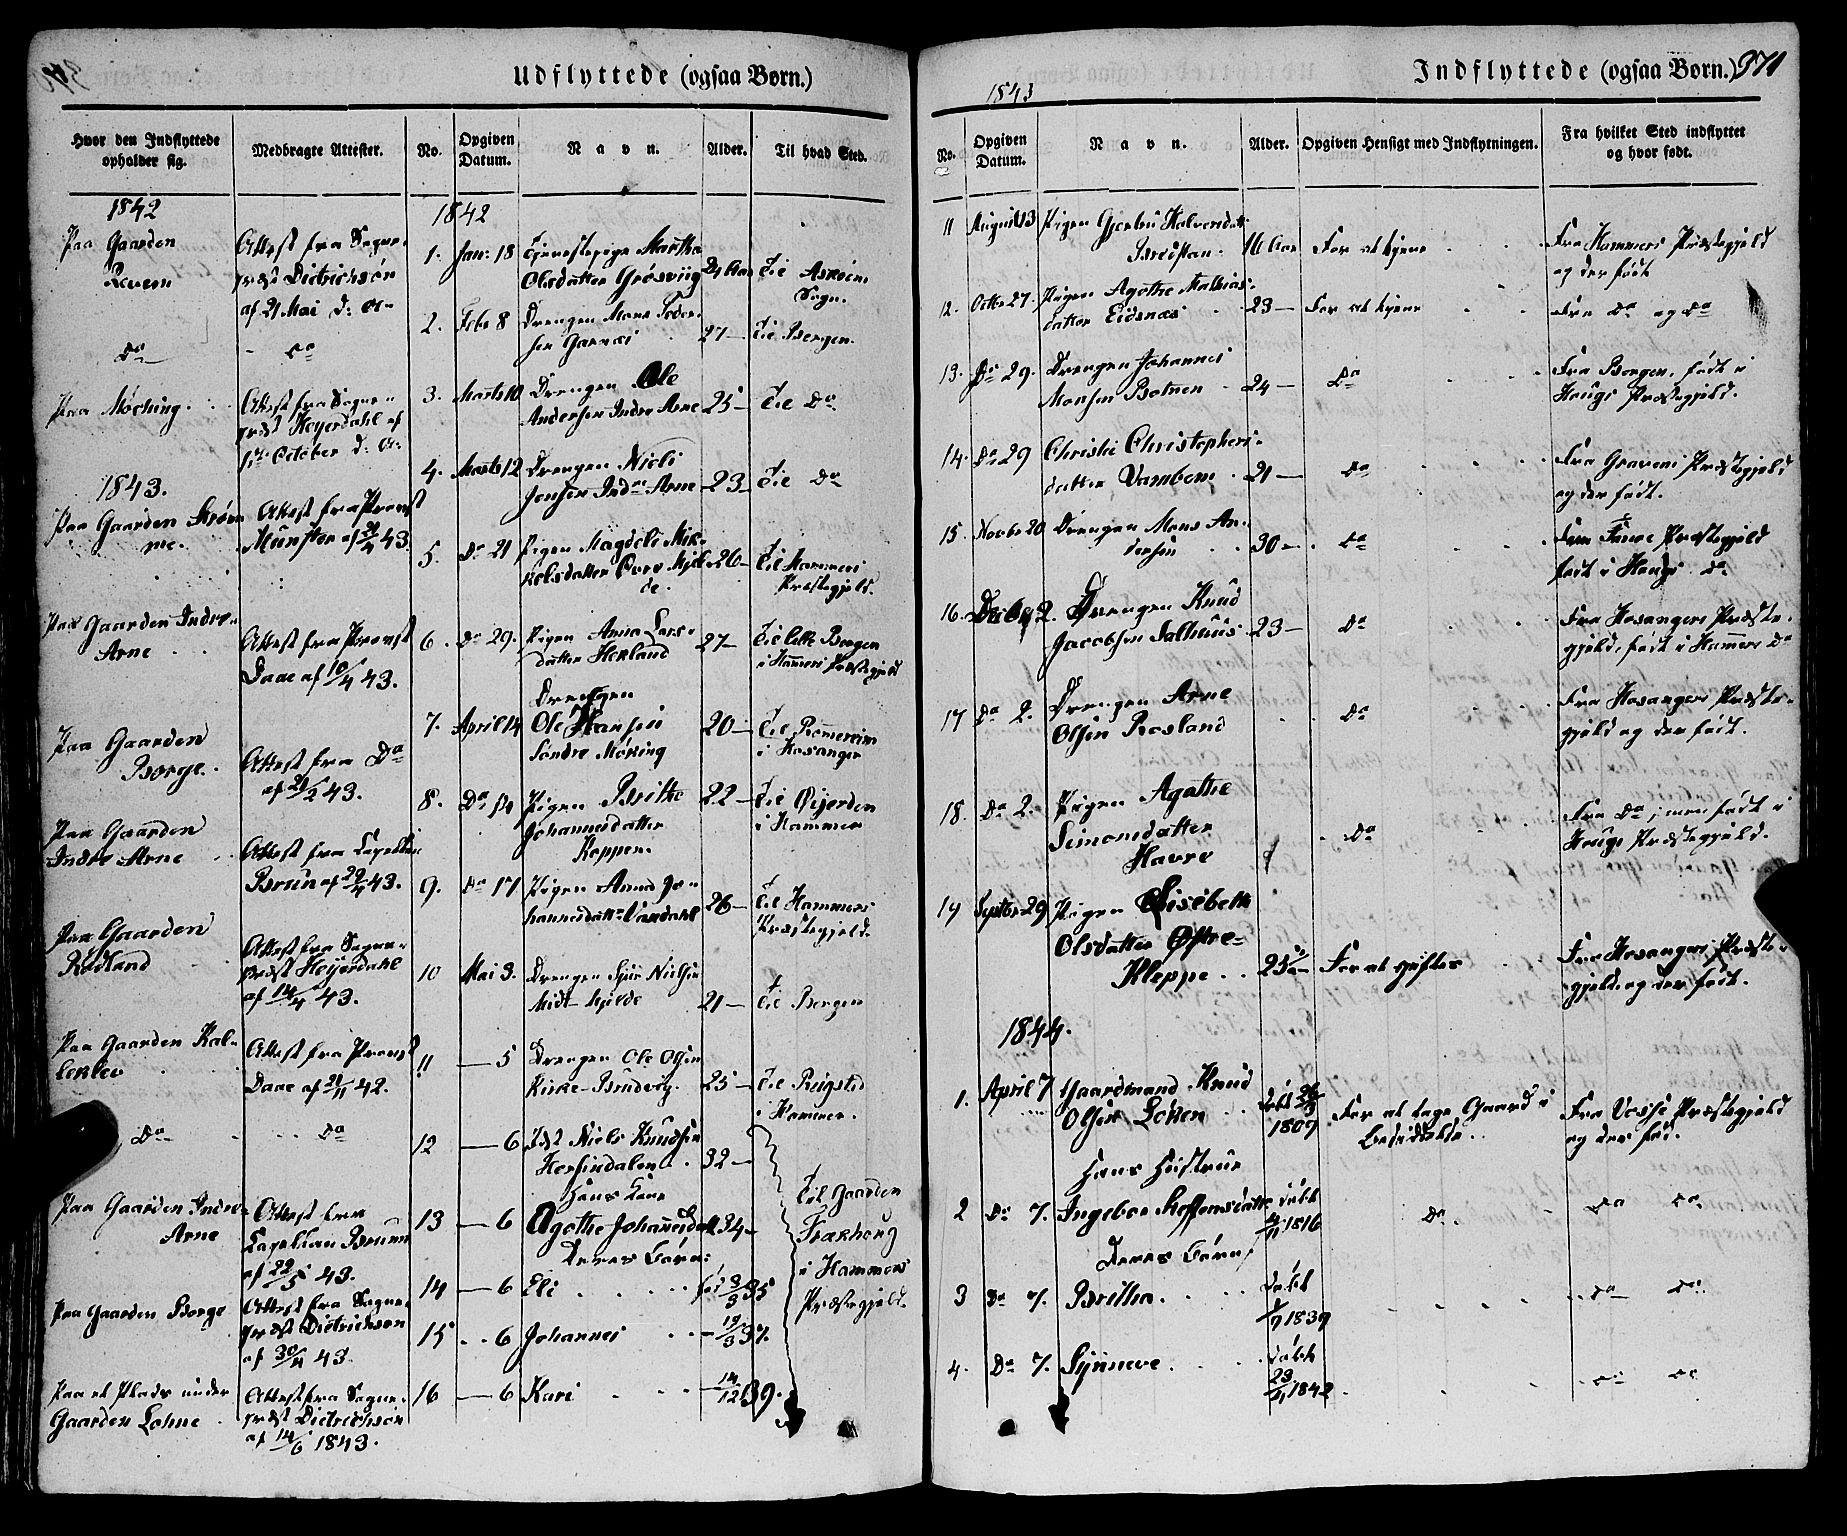 Udflyttede (ogsaa Børn.)
Hvor den Indflyttede opholder sig.
Medbragte Attester.
No.
Opgiven Datum.
Navn.
Alder.
Til hvad Sted.
1842
Paa Gaarden
Attest fra Sogne-
præst Dietrichson
af 21 Mai d: A:
Do
Do
Paa Møching
Attest fra Sogne-
præst Heyerdahl af
October d: A:
1843.
Paa Gaarden
Attest fra Provst
Munster af
43.
Paa Gaarden Indre
Arne
Attest fra Provst
Daae af 10/4 43.
Paa Gaarden
Borge
Attest fra Do
af
43.
Paa Gaarden
Indre Arne
Attest fra Capellan
Bruun af 22/4 43.
Paa Gaarden
Rødland
Attest fra Sogne-
præst Heyerdahl
af 14/4 43.
Paa Gaarden Kal-
leklev
Attest fra Provst
Daae af 21/11 42.
Do
Do
Paa Gaarden Indre
Arne
Attest fra
Capellan Bruun
af 22/5 43.
Paa Gaarden Borge
Attest fra Sogne-
præst Dietrichson
af 30/4 43.
Paa et Plads under
Gaarden Lohne
Attest fra Sogne-
præst Dietrichson
af 14/6 1843.
1842
1. Jan: 18 Tjenestepige Martha
Olsdatter Grøsviig 24 Aar Til Askøen
Sogn.
2. Febr 8 Drengen Mons Peder-
sen Garnæs 27 Til Bergen.
3. Marts 10 Drengen Ole
Andersen Indre Arne 25 Til Do
4. Marts 12 Drengen Niels
Jensen Indre Arne 23 Til Do
5. Do 21 Pigen Magdeli Mik-
kelsdatter Øvre Mjel- 26 Til Hammers
de. Præstegjeld.
6. Do 29. Pigen Anna Lars-
datter Herland 27 Til Lille Bergen
i Hammers Præstegjeld
7. April 14 Drengen
Ole Hansen 20 Til Rommereim
Søndre Møking i Hosanger
8. Do 14 Pigen Brithe 22 Til Øijerden
Johannesdatter i Hammer
Koppen.
9. Do 17 Pigen Anna Jo-
hannesdatter 26 Til Hammers
Præstegjeld.
10 Mai 3. Drengen Nielsen
Midt-Mjelde 21 Til Bergen
11 5 Drengen Ole Olsen
Kirke-Bruvig 25 Til Reigstad
i Hammer.
12 6 Inds: Niels Knudsen
32
Hans Kone
13 6 Agathe Johannesdatt 34
Til Gaarden
Deres Børn:
14 6 Eli
35
i Hammers
Præstegjeld.
15 6 Johannes 19/3 37.
16 6 Kari 14/12 39.
Indflyttede (ogsaa Børn.) 371
1843
No.
Opgiven Datum.
Navn.
Alder.
Opgiven Hensigt med Indflytningen.
Fra hvilket Sted indflyttet og hvor født.
11 August 13 Pigen Gjertru Halvorsdatt
Bredsten 16 Aar For at tjene Fra Hammers Præstegjeld
og der født
12. Octbr 27. Pigen Agathe Mathias-
datter Eidsnæs 23 For at tjene Fra Do og Do
13. Do 29. Drengen Johannes
Monsen Botnen 24 Do Fra Bergen, født i
Hougs Præstegjeld.
14. Do 29 Christi Christophers-
datter 21 Do Fra Gravens Præstegjeld
og der født.
15 Novbr 20 Drengen Mons An-
dersen 30 Do Fane Præstegjeld
født i Hougs Do
16. Decbr 2. Drengen Knud
Jacobsen Salhuus 23 Do Fra Hosangers Præste-
gjeld, født i Hammers Do
17 Do 2. Drengen Arne
Olsen Rosland Do Fra Hosangers Præste-
gjeld og der født.
18. Do 2. Pigen Agathe
Simonsdatter
Havre Do Fra Do; men født i
Hougs Præstegjeld.
19 Septbr 29 Pigen Lisebeth
Olsdatter Østre-
Kleppe 25 For at giftes Fra Hosangers Præste-
gjeld og der født.
1844.
1. April 7 Gaardmand Knud
Olsen Løken
1807 For at tage Gaard i
Besiddelse. Fra Vosse Præstegjeld
og der fød.
Hans Hustrue
2 Do 7. Ingebor Steffensdatter født
1816 Do Do Do
Deres Børn,
3 Do 7. Britha født
1839 Do Do
4. Do 7. Synneve født
23/11 1842 Do Do